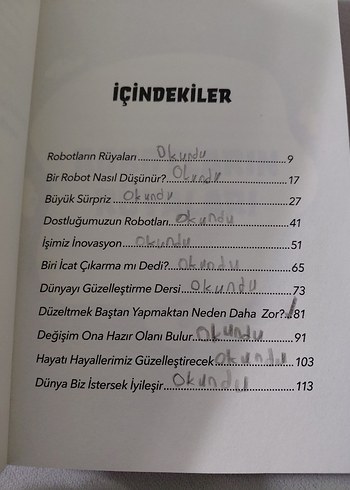 İÇİNDEKİLER
Robotların Rüyaları.....Okundu.....9
Bir Robot Nasıl Düşünür?.....Okundu.....17
Büyük Sürpriz.....Okundu.....27
Dostluğumuzun Robotları.....Okundu.....41
İşimiz İnovasyon.....Okundu.....51
Biri İcat Çıkarma mı Dedi?.....Okundu.....65
Dünyayı Güzelleştirme Dersi.....Okundu.....73
Düzeltmek Baştan Yapmaktan Neden Daha Zor?../81
Değişim Ona Hazır Olanı Bulur.....Okundu.....91
Hayatı Hayallerimiz Güzelleştirecek.....Okundu.....103
Dünya Biz İstersek İyileşir.....Okundu.....113